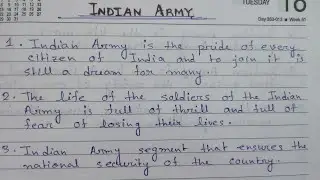 TUESDAY
INDIAN ARMY
1. Indian Army is the pride of every
citizen of India and to join it is
still a dream for many.
2. The life of the soldiers of the Indian
Army is full of thrill and full of
fear of losing their lives.
3. Indian Army segment that ensures the
national security of the country.